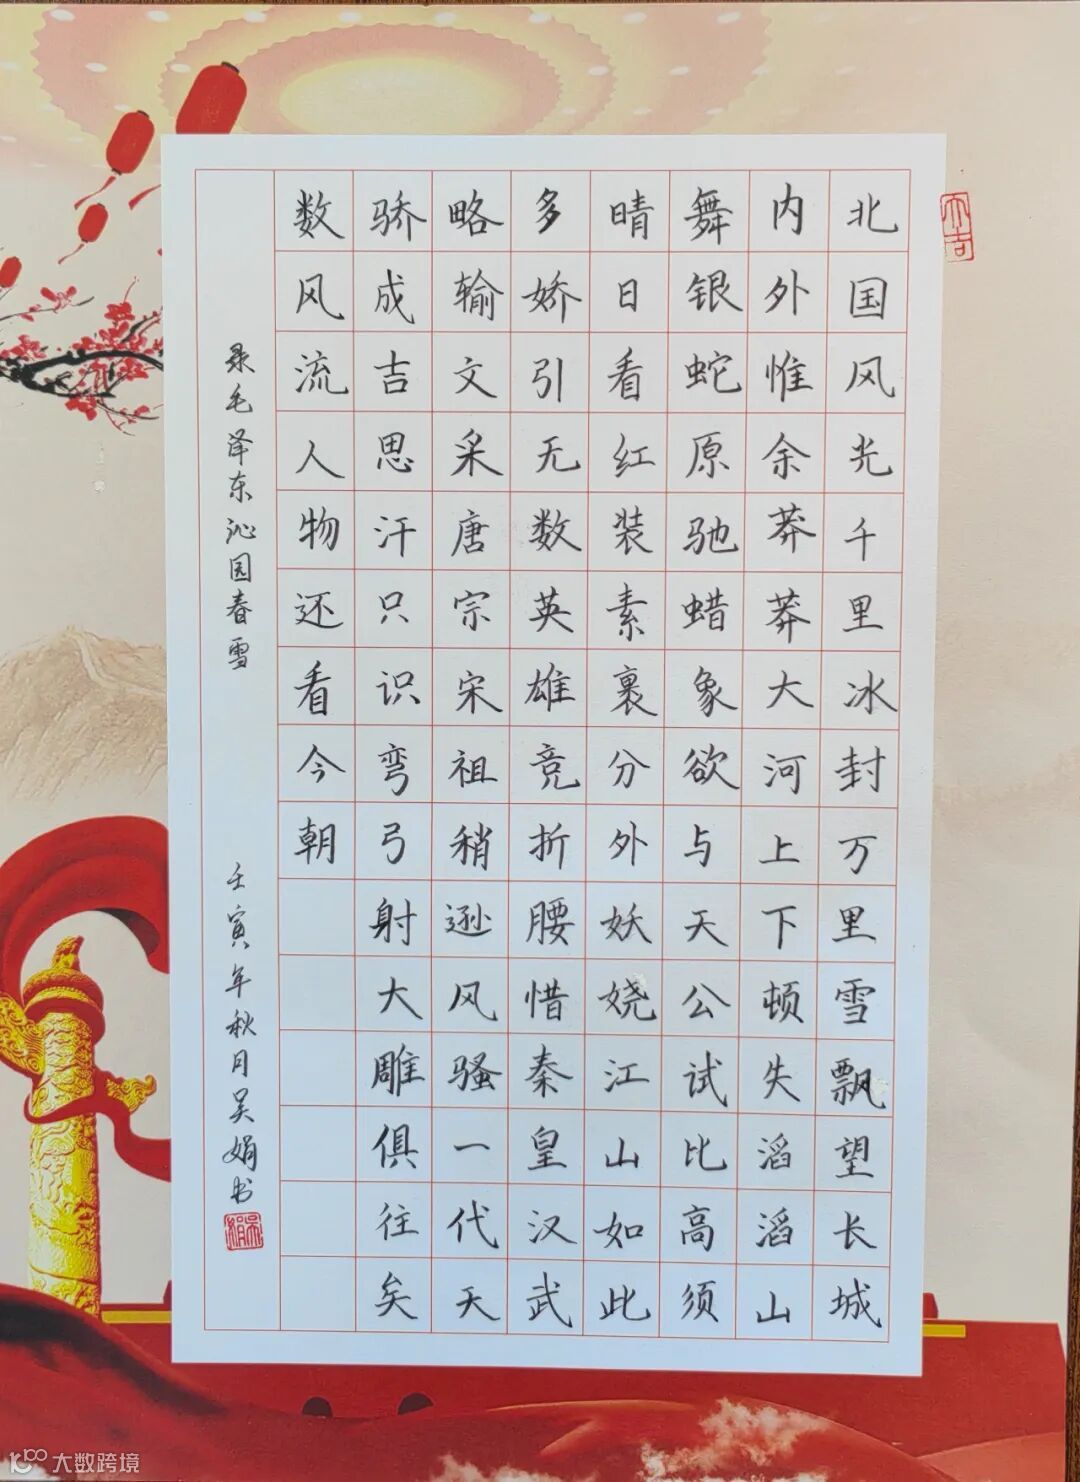 北国风光千里冰封万里雪飘望长城
内外惟余莽莽大河上下顿失滔滔山
舞银蛇原驰蜡象欲与天公试比高须
晴日看红装素裹分外妖娆江山如此
多娇引无数英雄竞折腰惜秦皇汉武
略输文采唐宗宋祖稍逊风骚一代天
骄成吉思汗只识弯弓射大雕俱往矣
数风流人物还看今朝
录毛泽东沁园春雪
壬寅年秋月吴娟书
吴娟
大吉
大数跨境